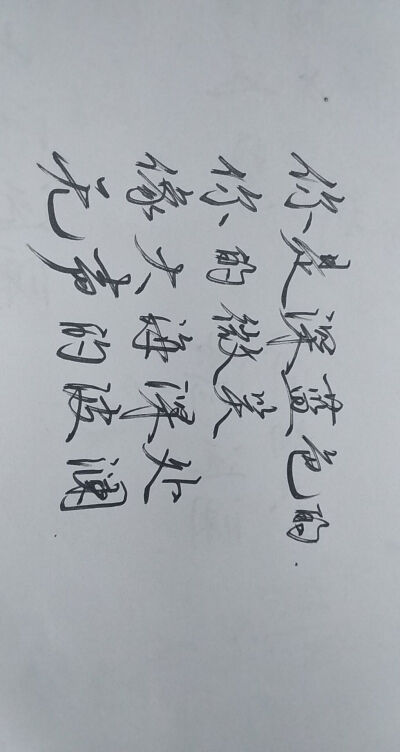 你是深蓝色的
你的微笑
像大海深处
无声的波澜